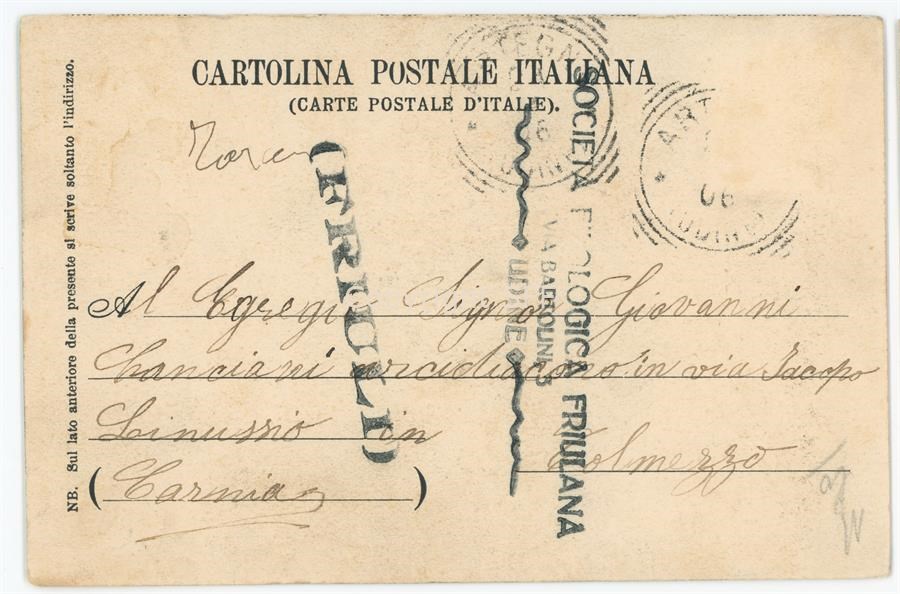 CARTOLINA POSTALE ITALIANA
(CARTE POSTALE D'ITALIE).
NB. Sul lato anteriore della presente si scrive soltanto l'indirizzo.
(FRIULI)
SOCIETÀ FILOLOGICA FRIULANA
VIA BARTOLINI 3
UDINE
ARTEGNA
06
(UDINE)
06
(UDINE)
Al Egregio Signor Giovanni
Canciani arcidiacono in via Jacopo
Linussio in Tolmezzo
(Carnia)